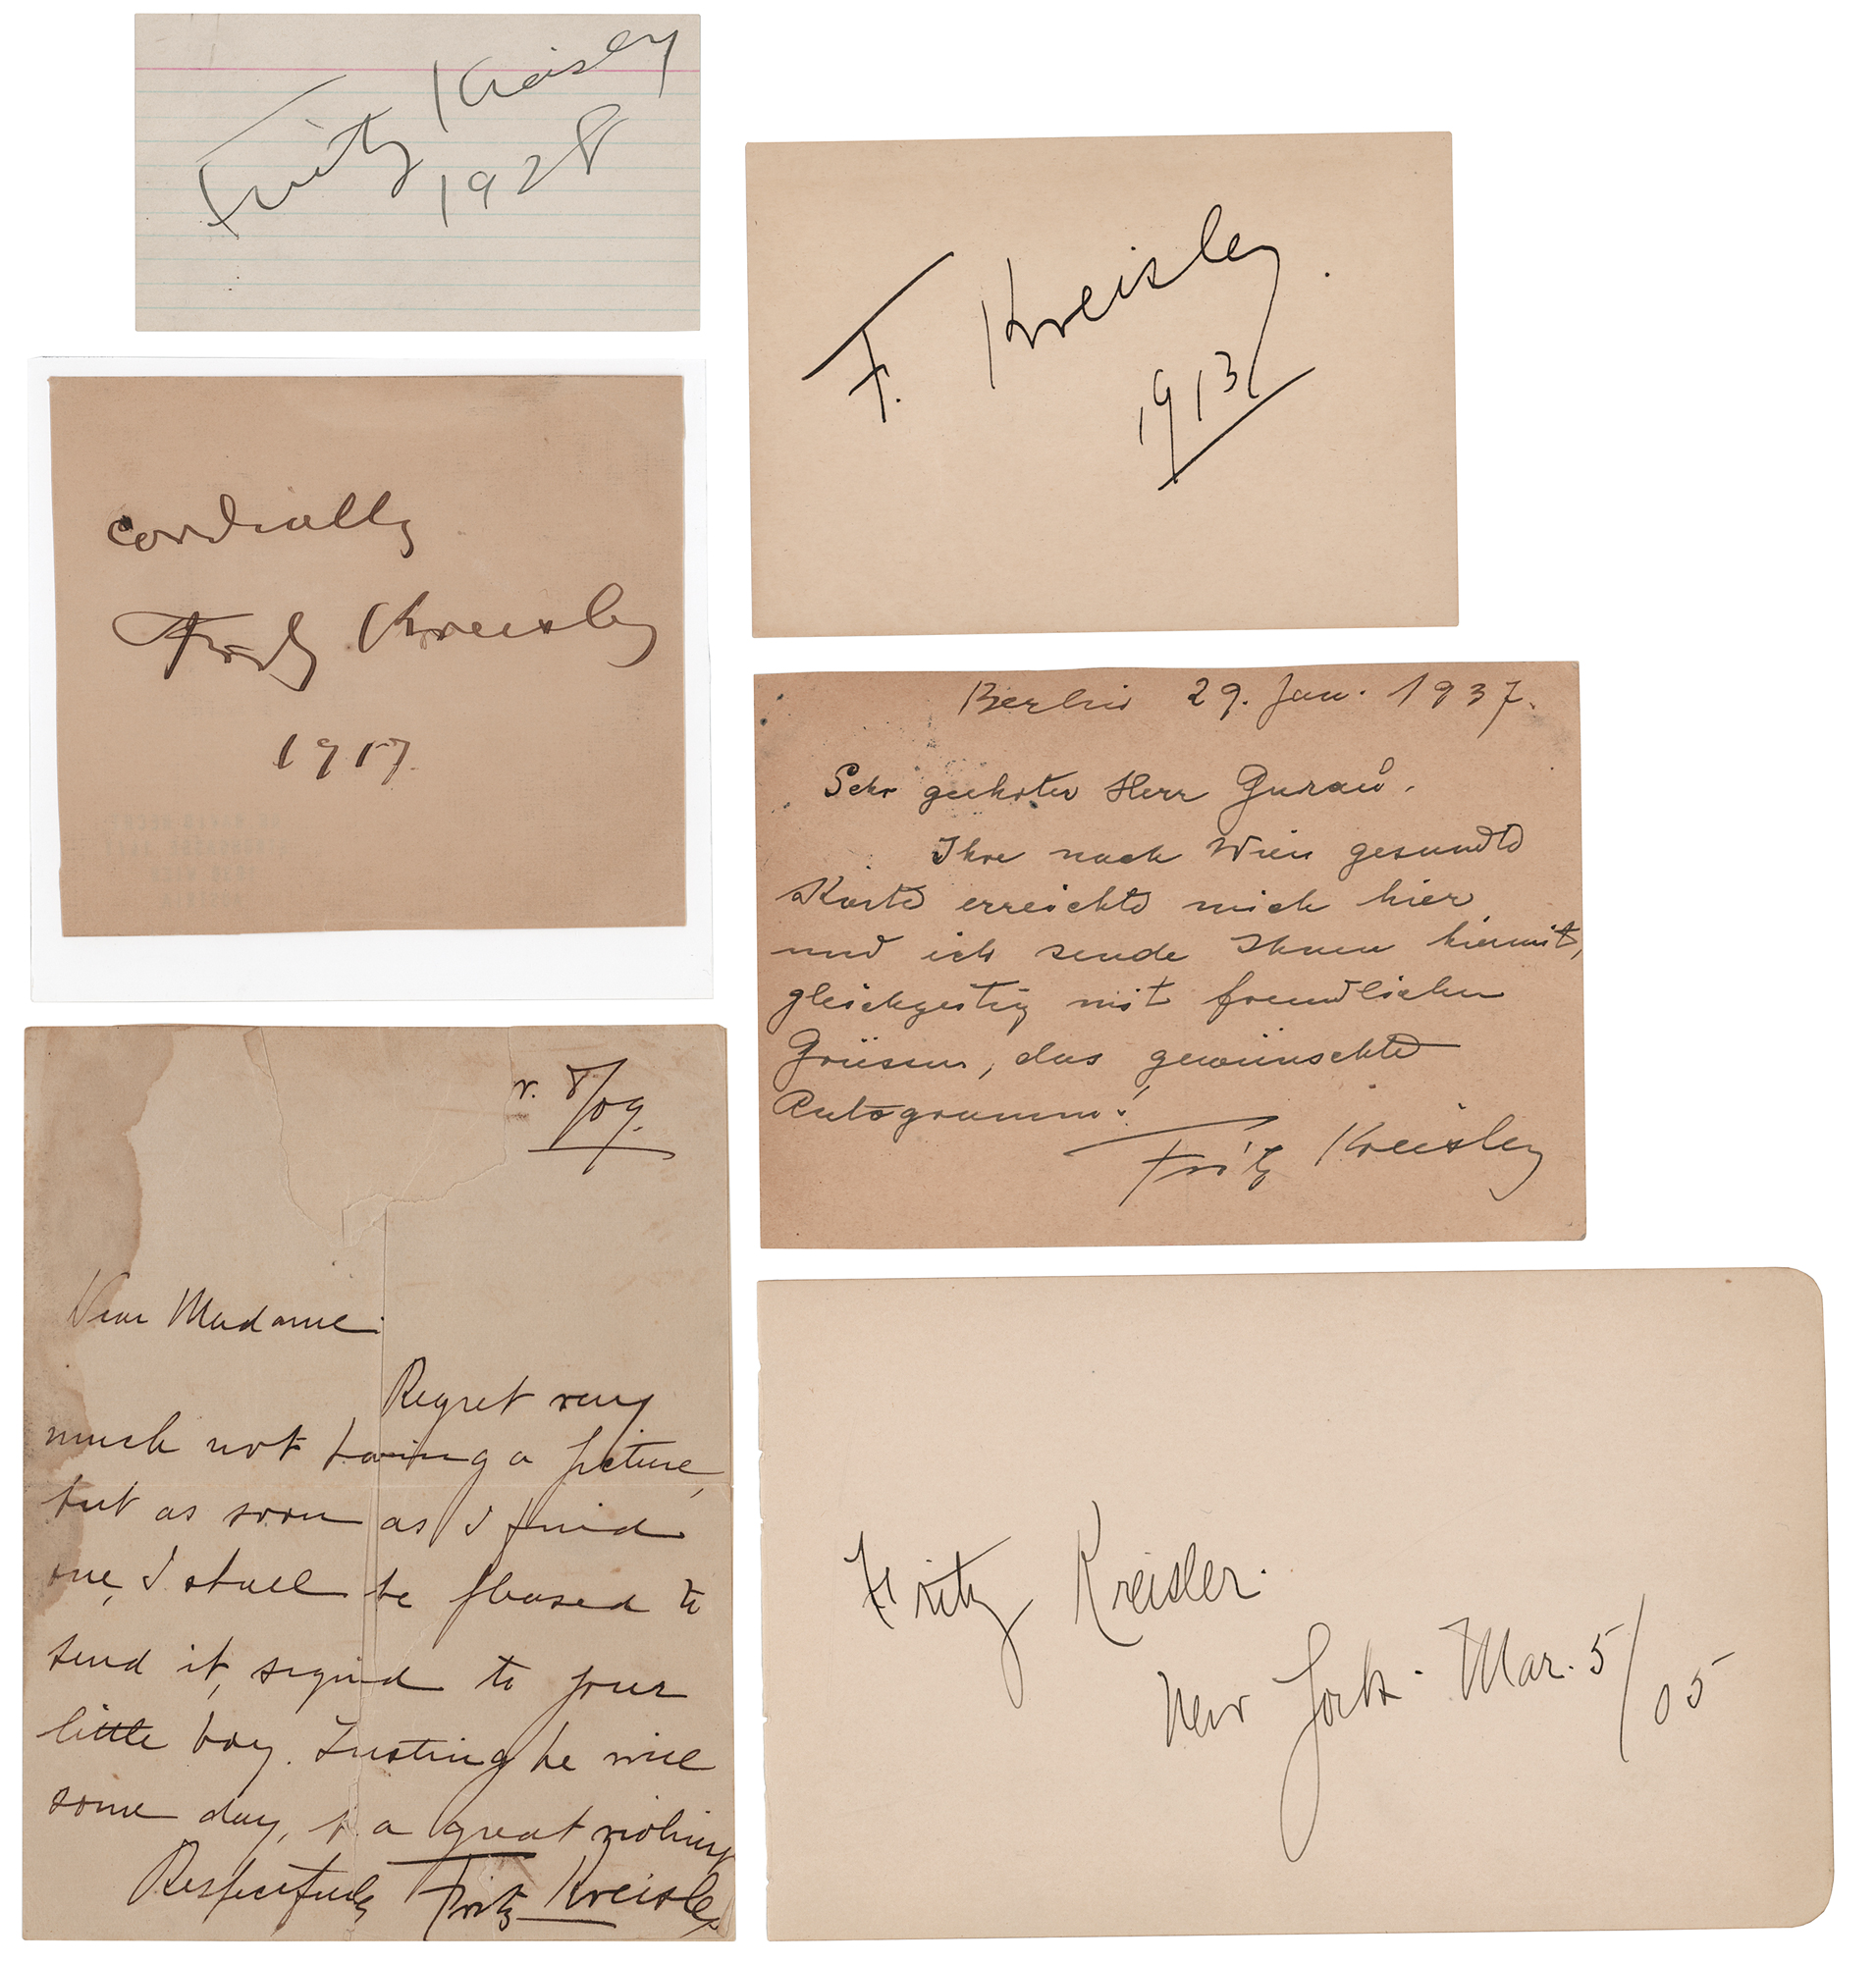 Fritz Kreisler
1928
F. Kreisler.
1913
cordially
Fritz Kreisler
1917
Berlin 29. Jan. 1937.
Sehr geehrter Herr
Ihre nach Wien gesandte
Karte erreichte mich hier
und ich sende Ihnen hiermit,
gleichzeitig mit freundlichen
Grüssen, das gewünschte
Autogramm!
Fritz Kreisler
8/09.
Dear Madame:
Regret very
much not having a picture,
but as soon as I find
one, I shall be pleased to
send it, signed to your
little boy. Trusting he will
some day, be a great violinist
Respectfully Fritz Kreisler
Fritz Kreisler.
New York - Mar. 5/05